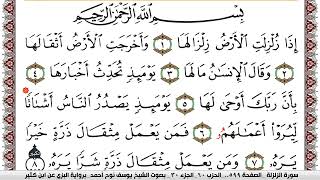 بِسْمِ اللَّهِ الرَّحْمَٰنِ الرَّحِيمِ
إِذَا زُلْزِلَتِ الْأَرْضُ زِلْزَالَهَا ١ وَأَخْرَجَتِ الْأَرْضُ أَثْقَالَهَا
٢ وَقَالَ الْإِنسَانُ مَا لَهَا ٣ يَوْمَئِذٍ تُحَدِّثُ أَخْبَارَهَا ٤
بِأَنَّ رَبَّكَ أَوْحَىٰ لَهَا ٥ يَوْمَئِذٍ يَصْدُرُ النَّاسُ أَشْتَاتًا
لِّيُرَوْا أَعْمَالَهُمُ ٦ فَمَن يَعْمَلْ مِثْقَالَ ذَرَّةٍ خَيْرًا
يَرَهُ ٧ وَمَن يَعْمَلْ مِثْقَالَ ذَرَّةٍ شَرًّا يَرَهُ ٨
سورة الزلزلة . الصفحة ٥٩٩ . الحزب ٦٠ . الجزء ٣٠ . بصوت الشيخ يوسف نوح احمد . برواية البزي عن ابن كثير